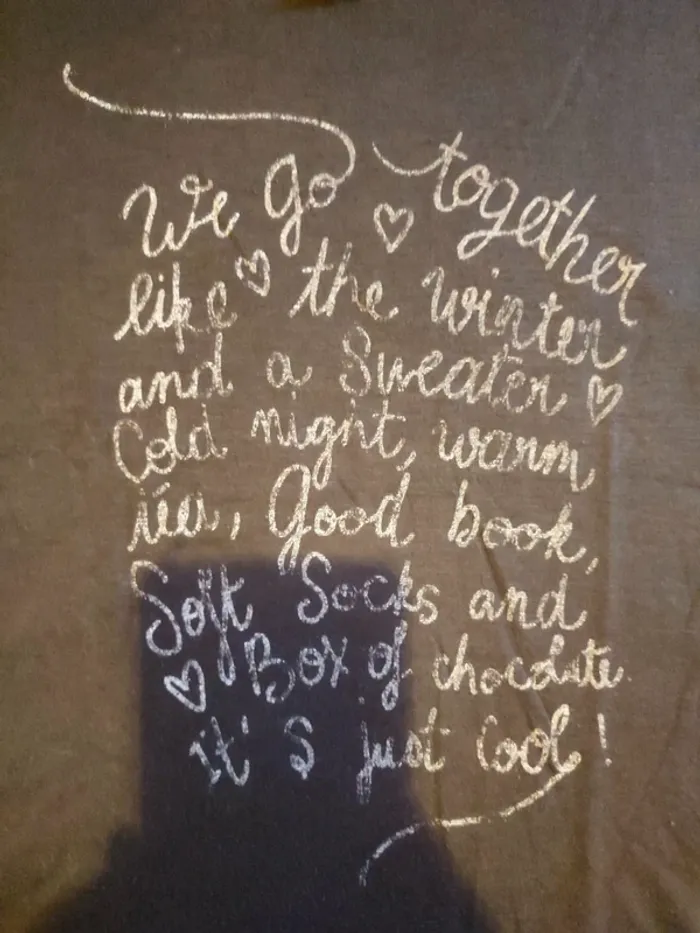 We go together
like the winter
and a Sweater
Cold night, warm
tea, Good book,
Soft Socks and
Box of chocolate.
it's just Cool!